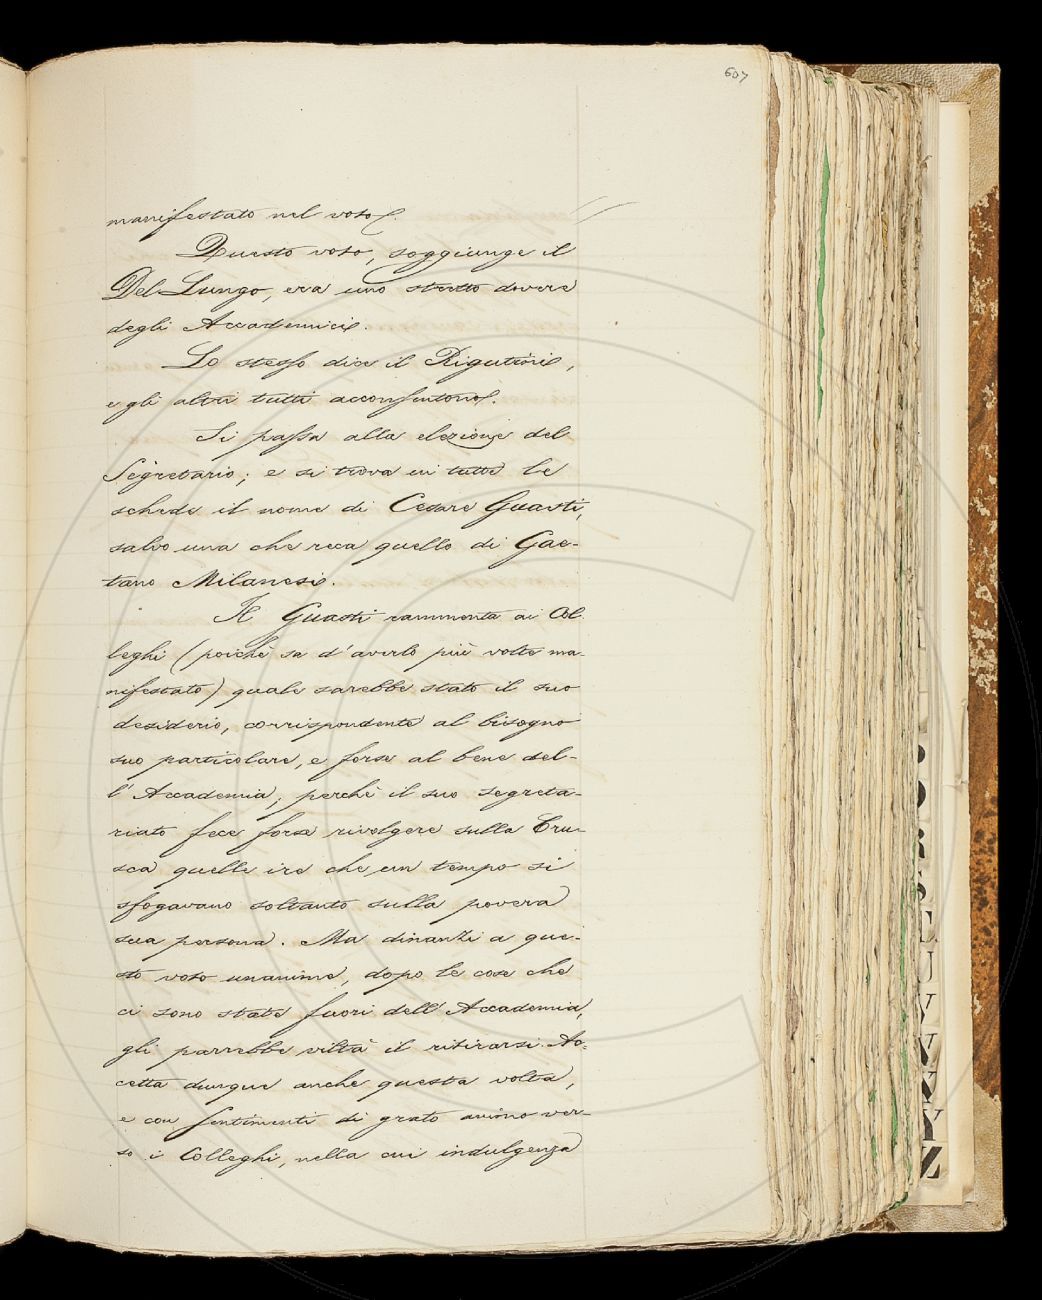 607
manifestato nel voto.
Questo voto, soggiunge il
Del Lungo, era uno stretto dovere
degli Accademici.
Lo stesso dice il Rigutini,
e gli altri tutti acconsentono.
Si passa alla elezione del
Segretario; e si trova in tutte le
schede il nome di Cesare Guasti,
salvo una che reca quello di Gae-
tano Milanesi.
Il Guasti rammenta ai Col
leghi (poichè sa d'averlo più volte ma-
nifestato) quale sarebbe stato il suo
desiderio, corrispondente al bisogno
suo particolare, e forse al bene del-
l'Accademia; perchè il suo segreta-
riato fece forse rivolgere sulla Cru-
sca quelle ire che un tempo si
sfogavano soltanto sulla povera
sua persona. Ma dinanzi a que-
sto voto unanime, dopo le cose che
ci sono state fuori dell'Accademia,
gli parrebbe viltà il ritirarsi. Ac-
cetta dunque anche questa volta,
e con sentimenti di grato animo ver-
so i Colleghi, nella cui indulgenza